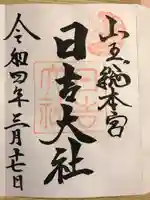 山王総本宮
日吉大社
令和四年三月十七日